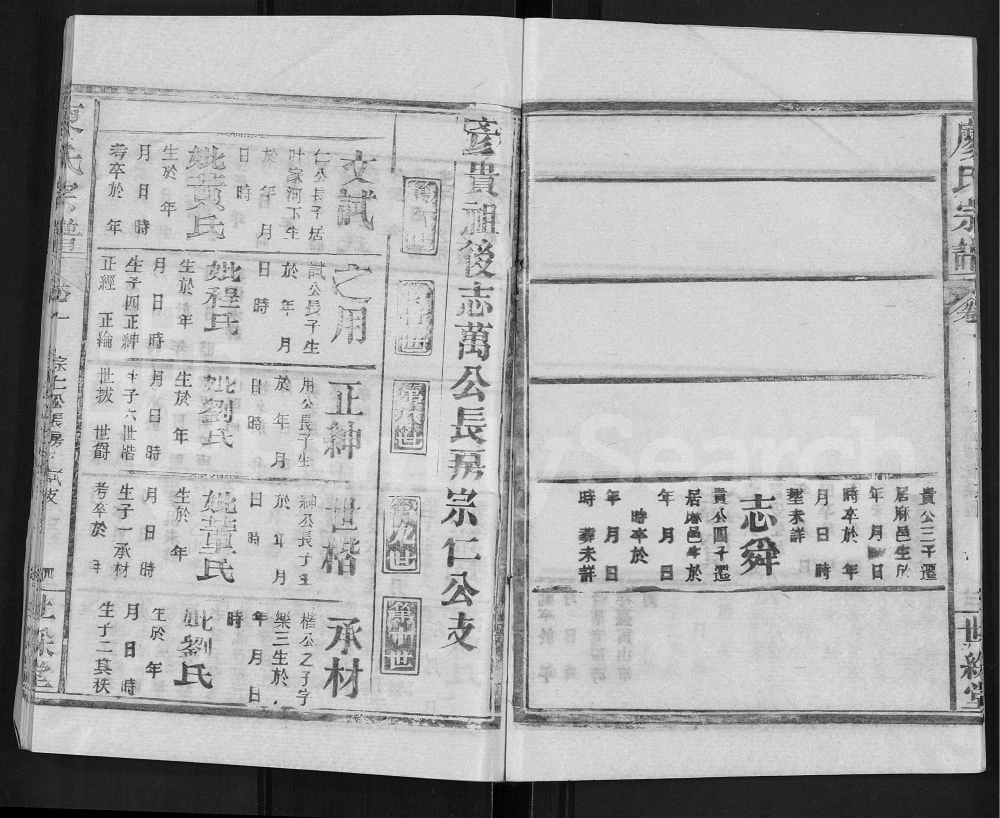 廖氏宗譜
卷
三
世綵堂
貴公三子遷
居麻邑生於
年 月 日
時卒於 年
月 日 時
塟未詳
志舜
貴公四子遷
居麻邑生於
年 月 日
時卒於
年 月 日
時 葬未詳
彥貴祖後志萬公長房宗仁公支
第九世
第廿世
文試
仁公長子居
叶家河下生
於 年 月
日 時
妣黃氏
生於 年
月 日 時
考卒於 年
之用
試公長子生
於 年 月
日 時
妣程氏
生於 年
月 日 時
生子四正紳
正經 正綸
正紳
用公長子生
於 年 月
日 時
妣劉氏
生於 年
月 日 時
生子六世楷
世拔 世爵
世楷
紳公長子生
於 年 月
日 時
妣董氏
生於 年
月 日 時
生子一承材
考卒於 年
承材
楷公之子字
樂三生於
年 月 日
時
妣劉氏
生於 年
月 日 時
生子二其秩
氏宗譜
四
世綵堂